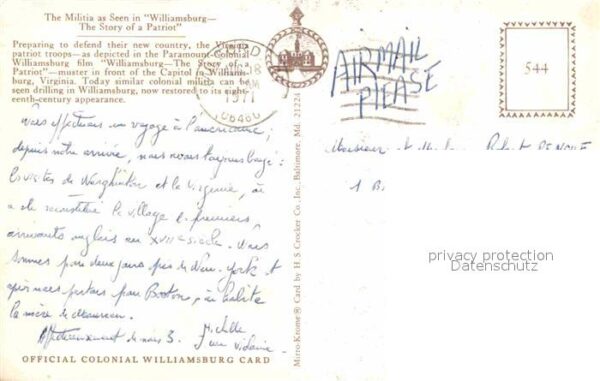 The Militia as Seen in "Williamsburg—
The Story of a Patriot"
Preparing to defend their new country, the Virginia
patriot troops—as depicted in the Paramount-Colonial
Williamsburg film "Williamsburg—The Story of a
Patriot"—muster in front of the Capitol in Williams-
burg, Virginia. Today similar colonial militia can be
seen drilling in Williamsburg, now restored to its eigh-
teenth-century appearance.
1977
06460
AIR MAIL
PLEASE
544
Nous effectuons un voyage à l'américaine,
depuis notre arrivée, nous avons toujours bougé :
les visites de Washington et la Virginie, où
a été reconstitué le village des premiers
arrivants anglais au XVII e siècle. Nous
sommes pour deux jours près de New-York et
après nous partons pour Boston, où habite
la mère de
Affectueusement de nous 3. Michelle
Monsieur et
1 B
Mirro-Krome® Card by H S Crocker Co., Inc., Baltimore, Md. 21224
privacy protection
Datenschutz
OFFICIAL COLONIAL WILLIAMSBURG CARD